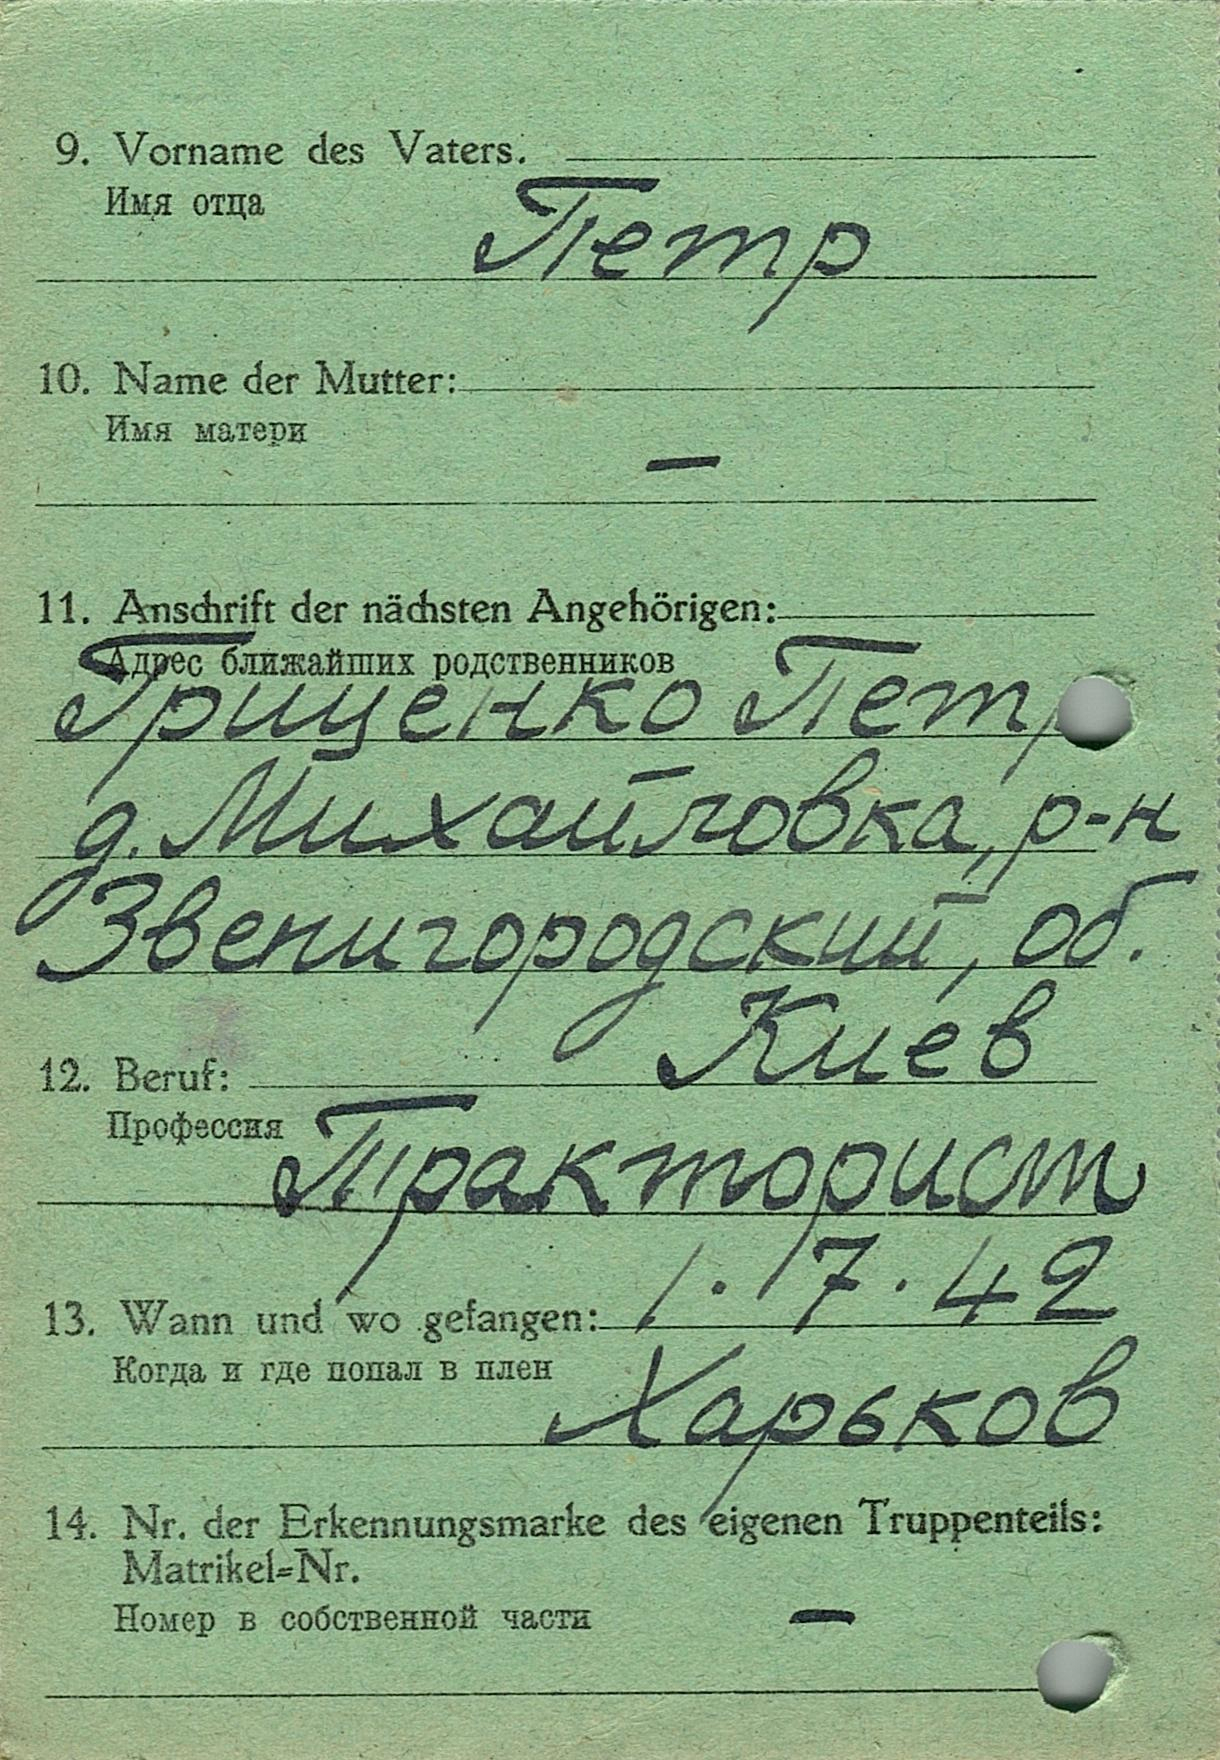 9. Vorname des Vaters.
Имя отца
Петр
10. Name der Mutter:
Имя матери
—
11. Anschrift der nächsten Angehörigen:
Адрес ближайших родственников
Гриценко Петр
д. Михайловка, р-н
Звенигородский, об.
Киев
12. Beruf:
Профессия
Тракторист
1. 7. 42
13. Wann und wo gefangen:
Когда и где попал в плен
Харьков
14. Nr. der Erkennungsmarke des eigenen Truppenteils:
Matrikel=Nr.
Номер в собственной части
—